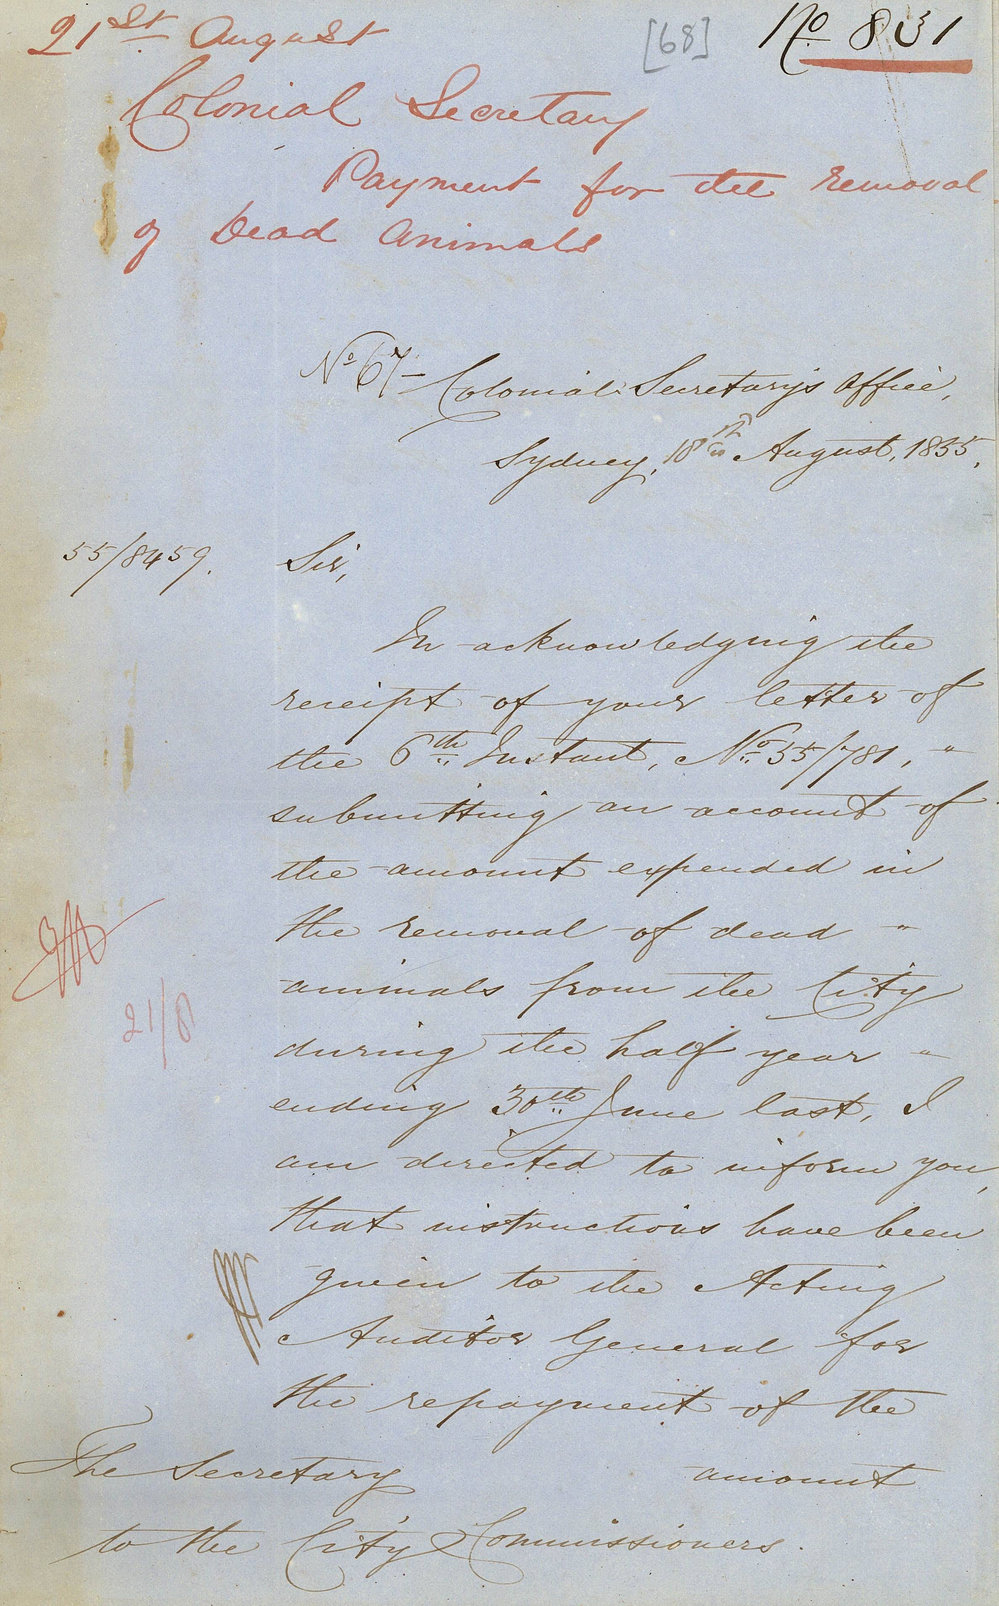 21st August [68] No 831
Colonial Secretary
Payment for the removal
of Dead Animals
No 67 - Colonial Secretary's Office,
Sydney, 18th August, 1855.
55/8459.
Sir,
In acknowledging the
receipt of your letter of
the 6th Instant, No. 55/781, "
submitting an account of
the amount expended in
the removal of dead "
animals from the City
during the half year "
ending 30th June last, I
am directed to inform you,
that instructions have been
21/8
given to the Acting
Auditor General for
the repayment of the
amount
The Secretary
to the City Commissioners.